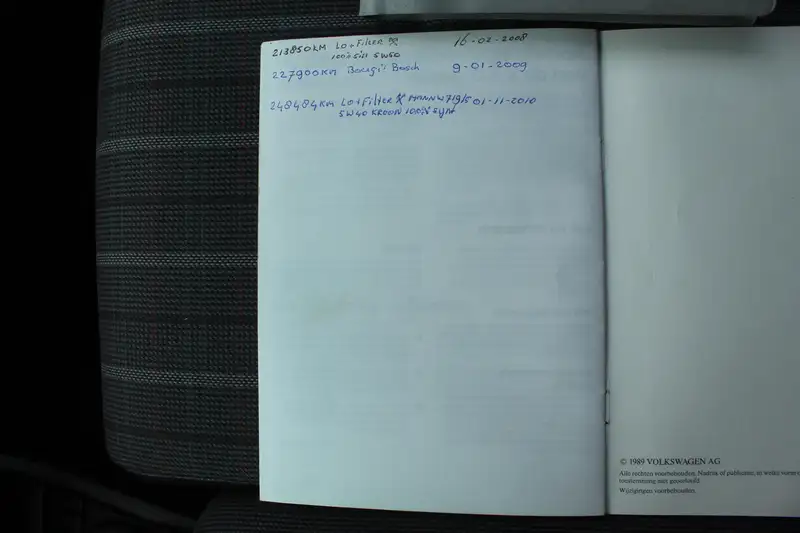 213850KM LO+Filter 16-02-2008
100% sin 5W50
227900KM Bougi's Bosch 9-01-2009
248484KM LO+Filter MANN W719/5 01-11-2010
5W40 KROON 100% synt
© 1989 VOLKSWAGEN AG
Alle rechten voorbehouden. Nadruk of publicatie, in welke vorm
toestemming niet geoorloofd.
Wijzigingen voorbehouden.